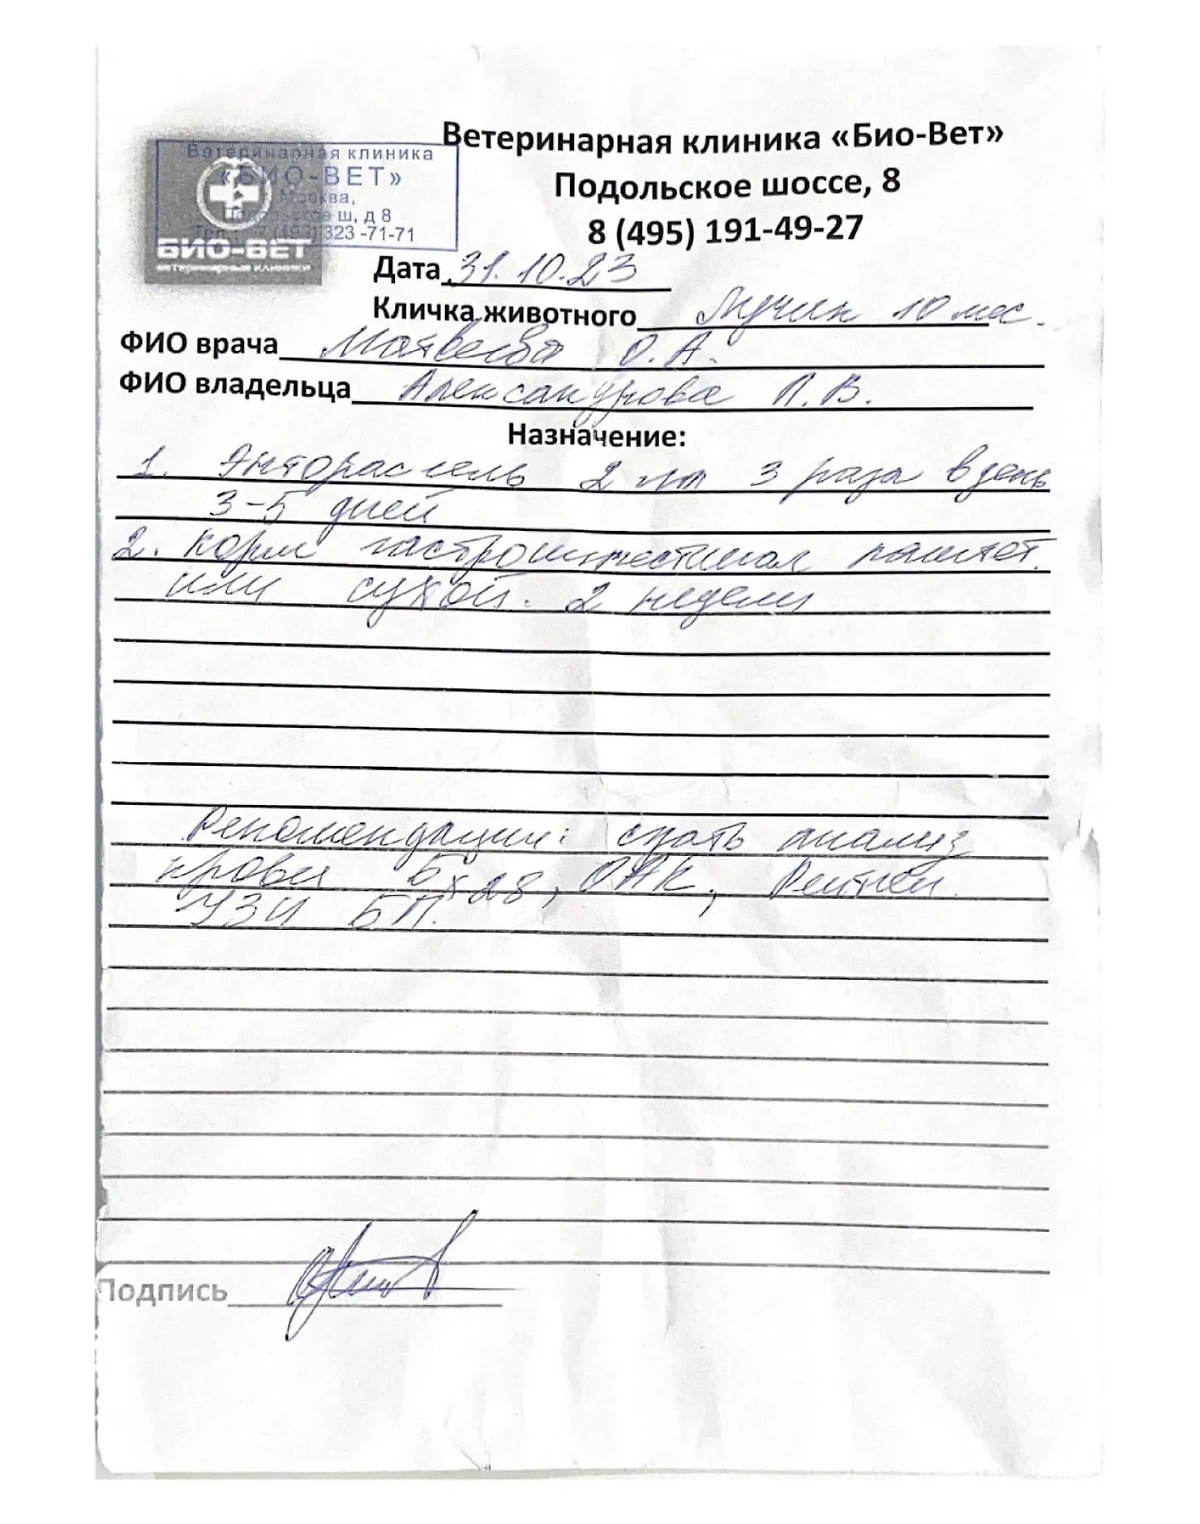 Ветеринарная клиника «Био-Вет»
Подольское шоссе, 8
8 (495) 191-49-27
Ветеринарная клиника
«БИО-ВЕТ»
Москва,
Подольское ш, д 8
323 -71-71
БИО-ВЕТ
ветеринарные клиники
Дата 31.10.23
Кличка животного 10 мес.
ФИО врача Матвеева О.А.
ФИО владельца Александрова П.В.
Назначение:
1. 2 3 раза в день
3-5 дней
2. Корм гастроинтестинал
или сухой. 2 недели
Рекомендации: сдать анализ
крови Бх28, ОАК,
УЗИ БП.
Подпись